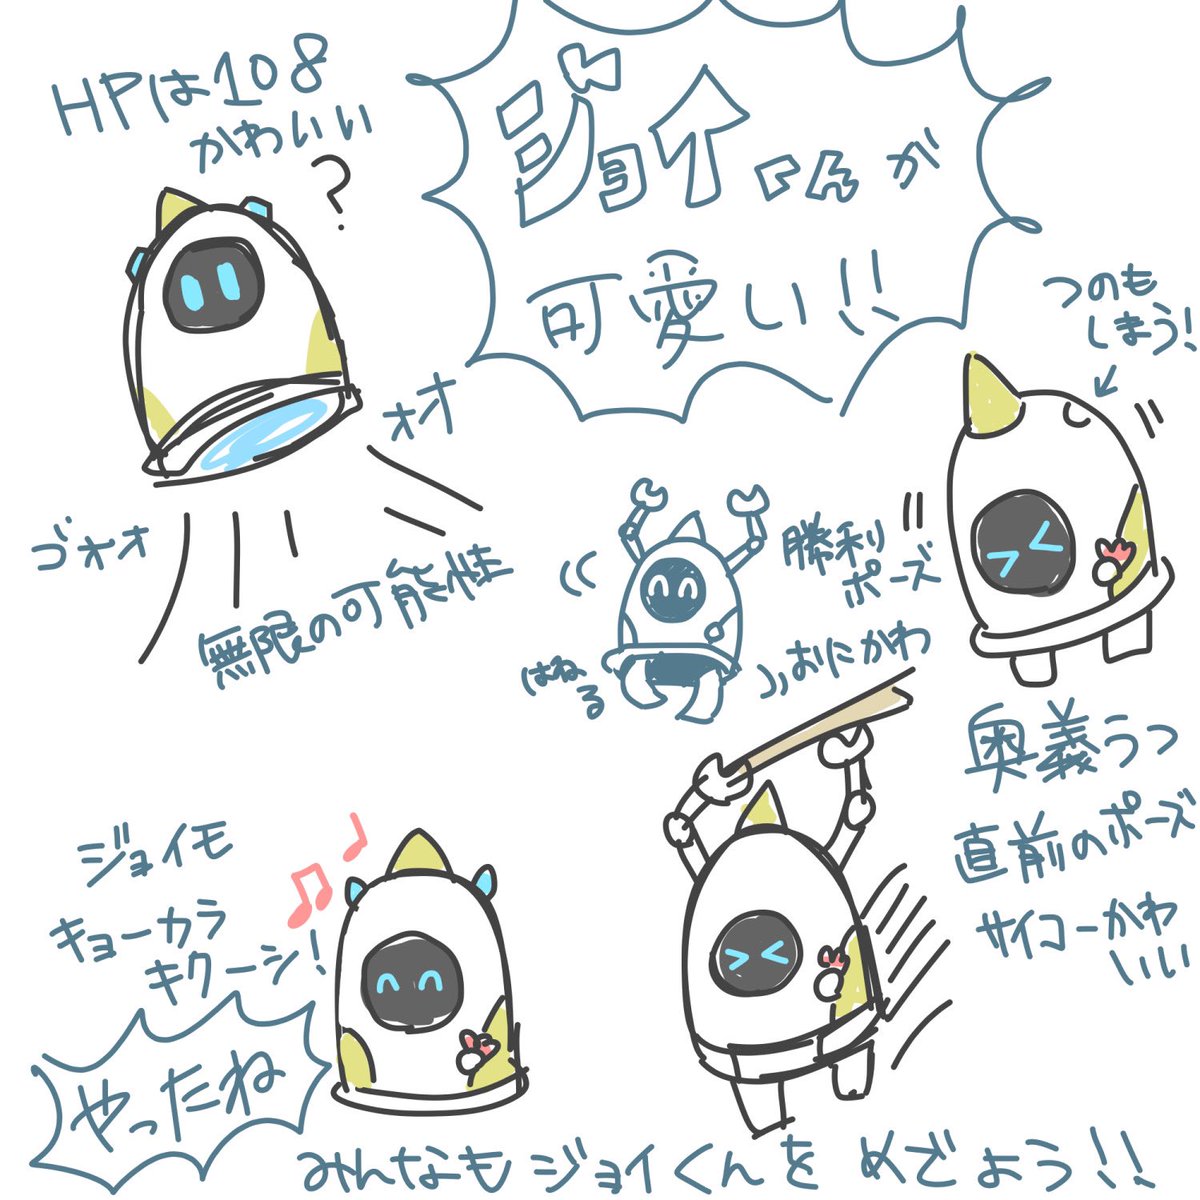 HPは108
かわいい
?
ジョイくんが
可愛い!!
つのも
しまう!
ォオ
ゴォォ
無限の可能性
勝利
ポーズ
はね
る
おにかわ
奥義うつ
直前のポーズ
サイコーかわ
いい
ジョイモ
キョーカラ
キクーシ!
やったね
みんなもジョイくんをめでよう!!